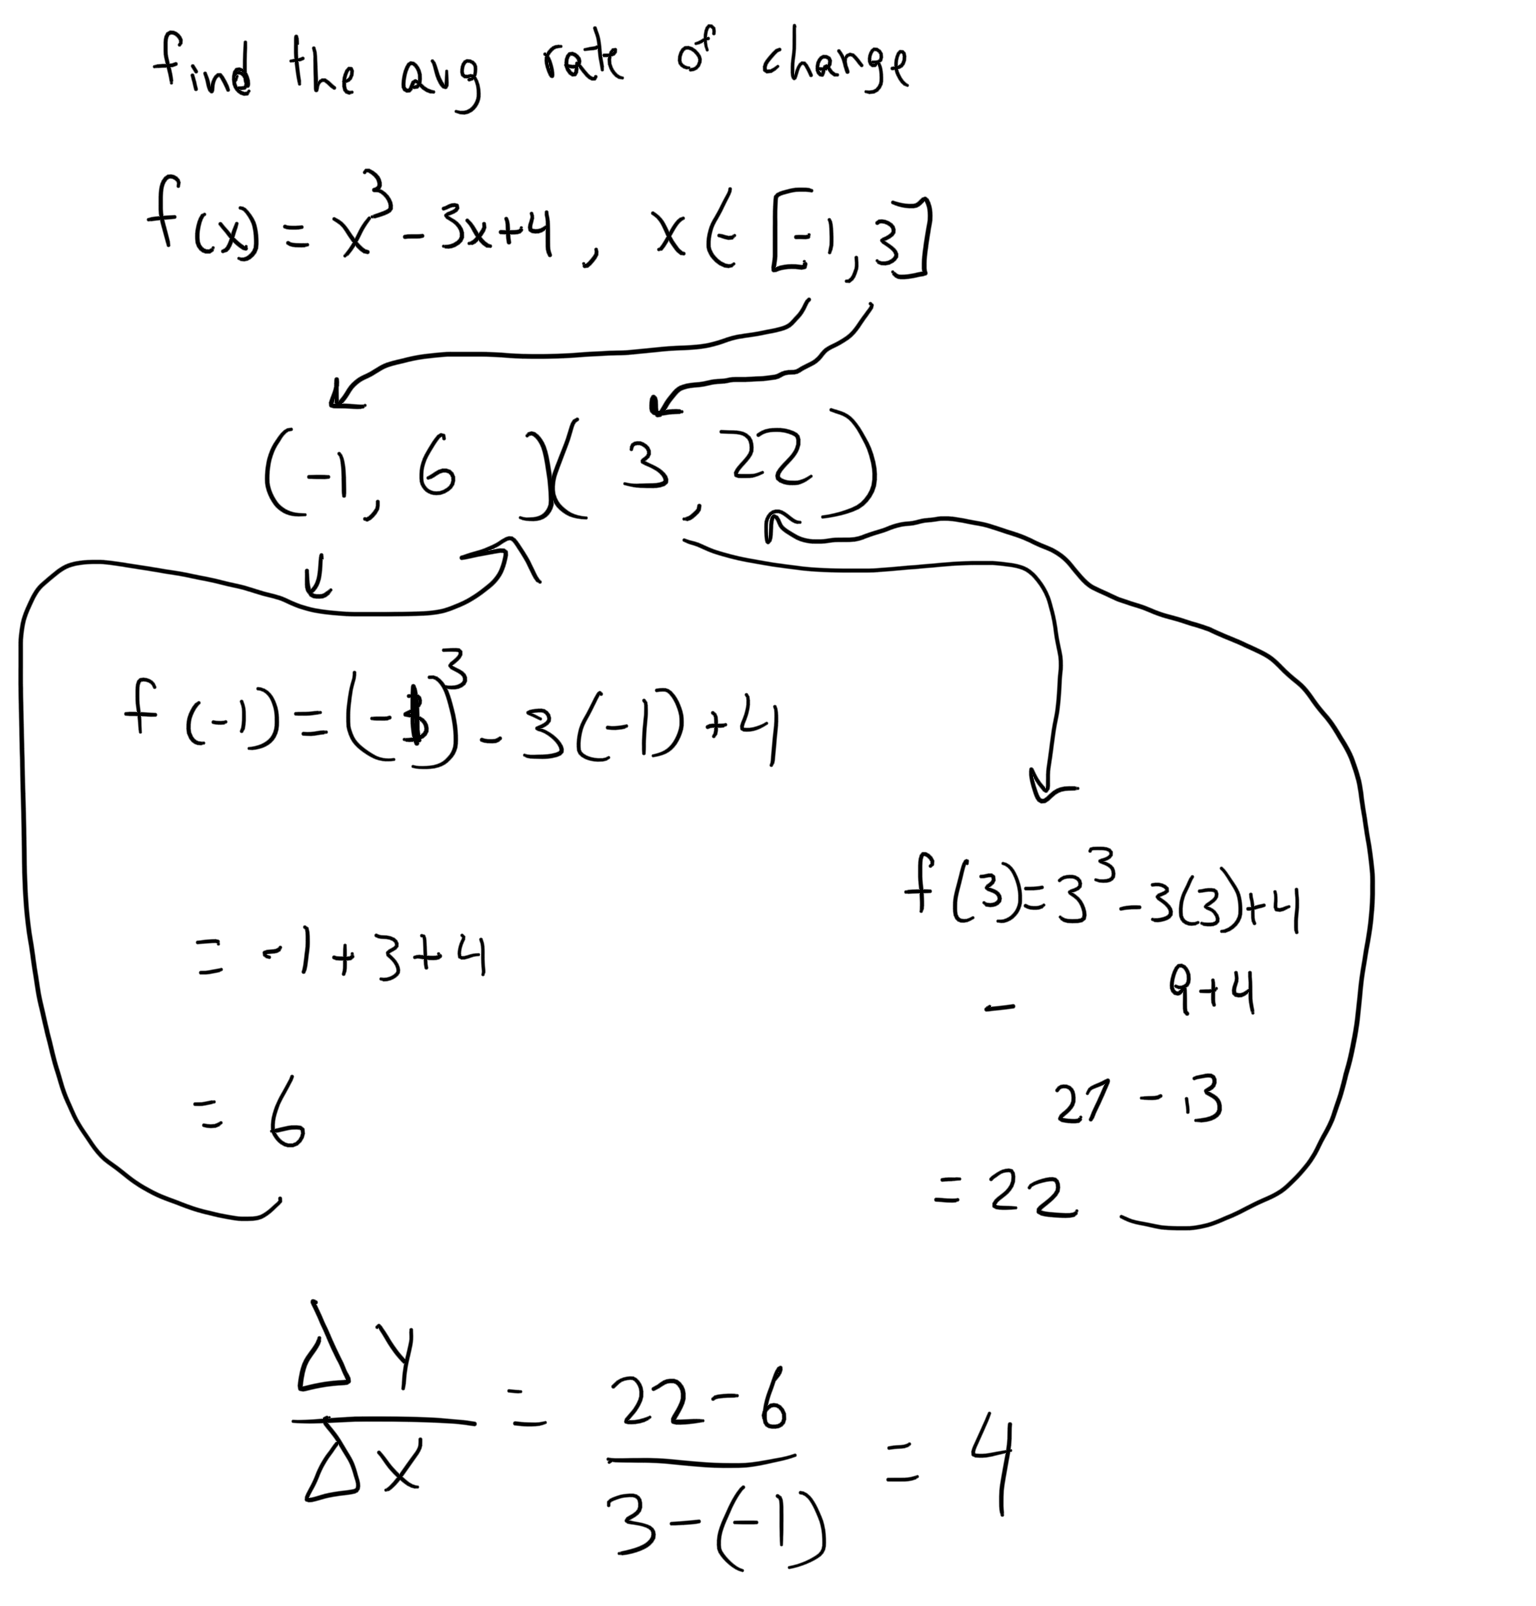 find the avg rate of change
f(x) = x³ - 3x+4 , x ∈ [-1,3]
(-1, 6 )( 3, 22 )
f(-1) = (-1)³ - 3(-1) + 4
= -1+3+4
= 6
f(3) = 3³ - 3(3)+4
- 9+4
27 - 13
= 22
Δy/Δx = 22-6/3-(-1) = 4